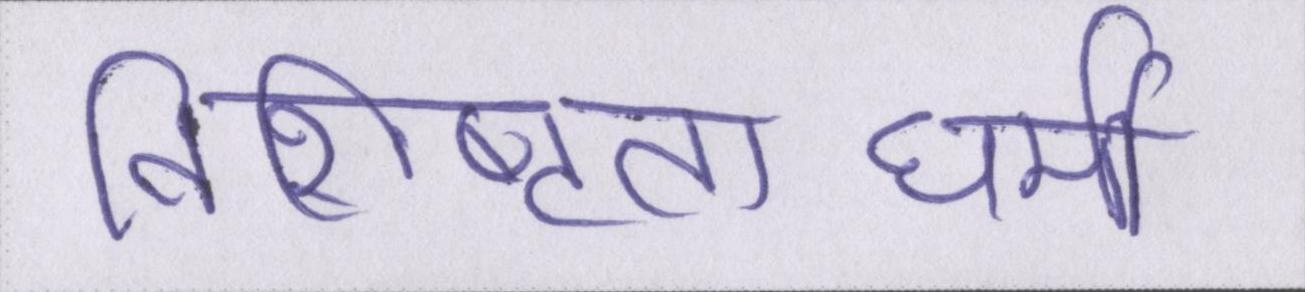 विशिष्टता धर्मी